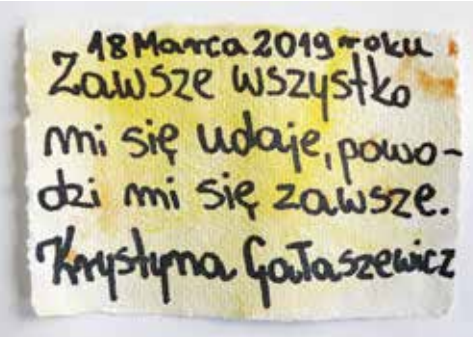 18 Marca 2019 roku
Zawsze wszystko
mi się udaje, powo-
dzi mi się zawsze.
Krystyna Gałaszewicz